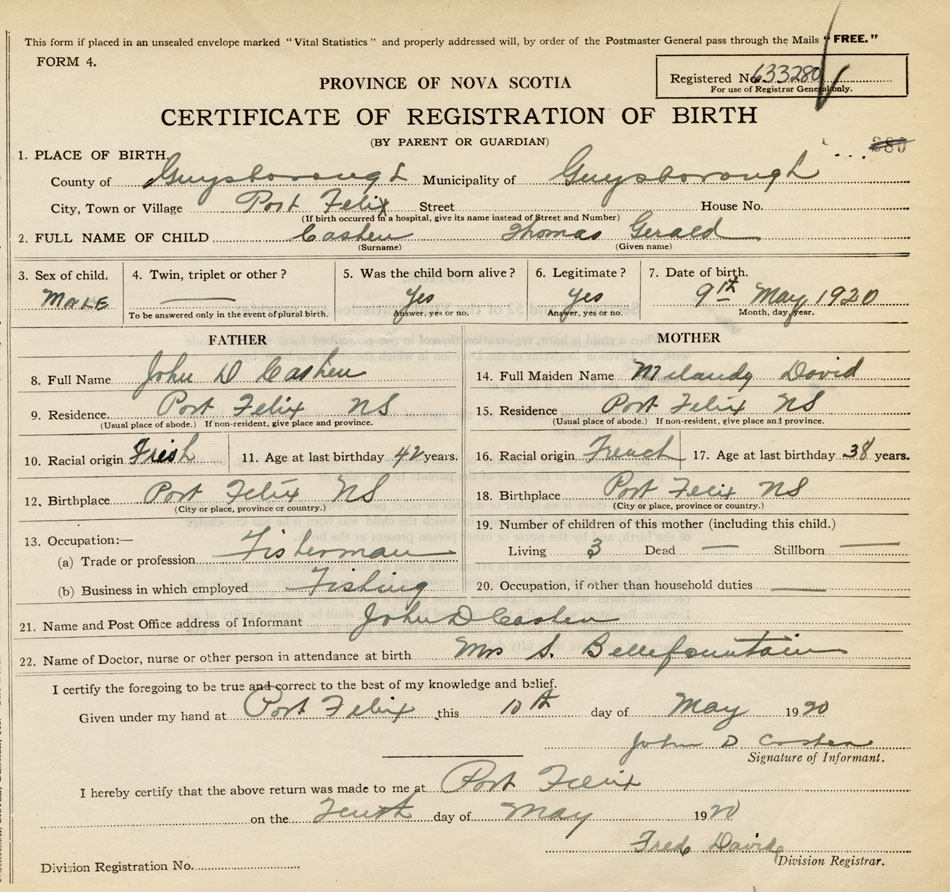 This form if placed in an unsealed envelope marked "Vital Statistics" and properly addressed will, by order of the Postmaster General pass through the Mails "FREE."
FORM 4.
Registered No. 633280
For use of Registrar General only.
PROVINCE OF NOVA SCOTIA
CERTIFICATE OF REGISTRATION OF BIRTH
(BY PARENT OR GUARDIAN)
380
1. PLACE OF BIRTH.
County of Guysborough Municipality of Guysborough
City, Town or Village Port Felix Street House No.
(If birth occurred in a hospital, give its name instead of Street and Number)
2. FULL NAME OF CHILD Cashen Thomas Gerald
(Surname) (Given name)
3. Sex of child. 4. Twin, triplet or other? 5. Was the child born alive? 6. Legitimate? 7. Date of birth.
MALE Yes Yes 9th May 1920
To be answered only in the event of plural birth. Answer, yes or no. Answer, yes or no. Month, day, year.
FATHER MOTHER
8. Full Name John D Cashen 14. Full Maiden Name Melandy David
9. Residence. Port Felix NS 15. Residence Port Felix NS
(Usual place of abode.) If non-resident, give place and province. (Usual place of abode.) If non-resident, give place and province.
10. Racial origin Irish 11. Age at last birthday 42 years. 16. Racial origin French 17. Age at last birthday 38 years.
12. Birthplace Port Felix NS 18. Birthplace Port Felix NS
(City or place, province or country.) (City or place, province or country.)
13. Occupation:— 19. Number of children of this mother (including this child.)
(a) Trade or profession Fisherman Living 3 Dead — Stillborn —
(b) Business in which employed Fishing 20. Occupation, if other than household duties —
21. Name and Post Office address of Informant John D Cashen
22. Name of Doctor, nurse or other person in attendance at birth Mrs S. Bellefountain
I certify the foregoing to be true and correct to the best of my knowledge and belief.
Given under my hand at Port Felix this 10th day of May 1920
John D Cashen
Signature of Informant.
I hereby certify that the above return was made to me at Port Felix
on the Tenth day of May 1920
Fred David
Division Registration No. Division Registrar.